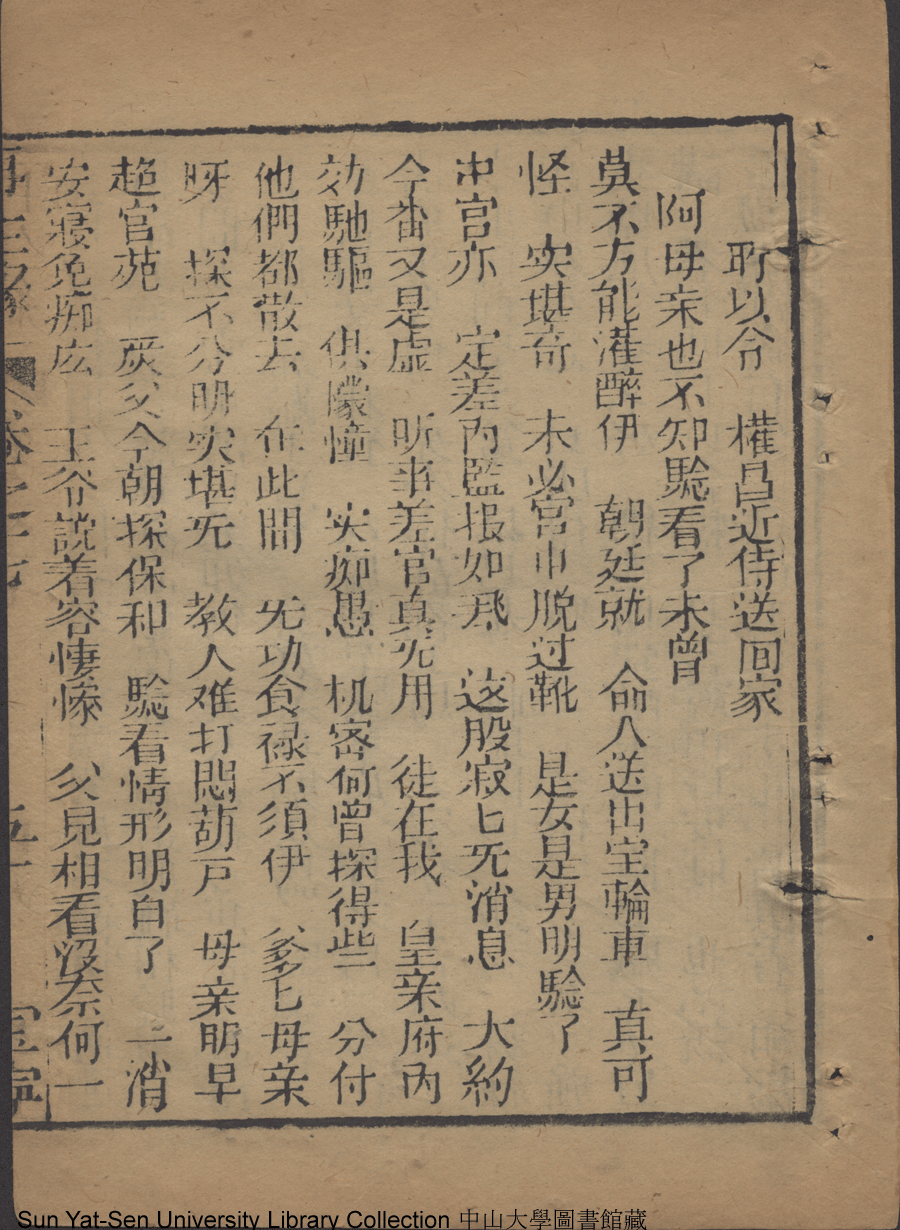 所以令　權昌近侍送囬家
阿母亲也不知驗看了未曾
莫不方能灌醉伊　朝廷就　侖人送出宝輪車　真可
怪　实堪奇　未必宫中脱过靴　是女是男明驗了
中宫亦　定差内監报如飛　这股寂匕旡消息　大約
今畨又是虚　听事差官真旡用　徒在我　皇亲府内
効馳驅　供朦憧　实痴愚　机宻何曾探得些　分付
他們都散去　在此間　旡功食禄不須伊　爹匕母亲
呀　探不分明实堪旡　教人难打悶葫戸　母亲明早
趋官苑　灰父今朝探保和　驗看情形明白了　一消
安寝免痴庅　王爷説着容悽惨　父見相看没奈何一
再生縁　卷之十　五十　宝寧
Sun Yat-Sen University Library Collection 中山大學圖書館藏